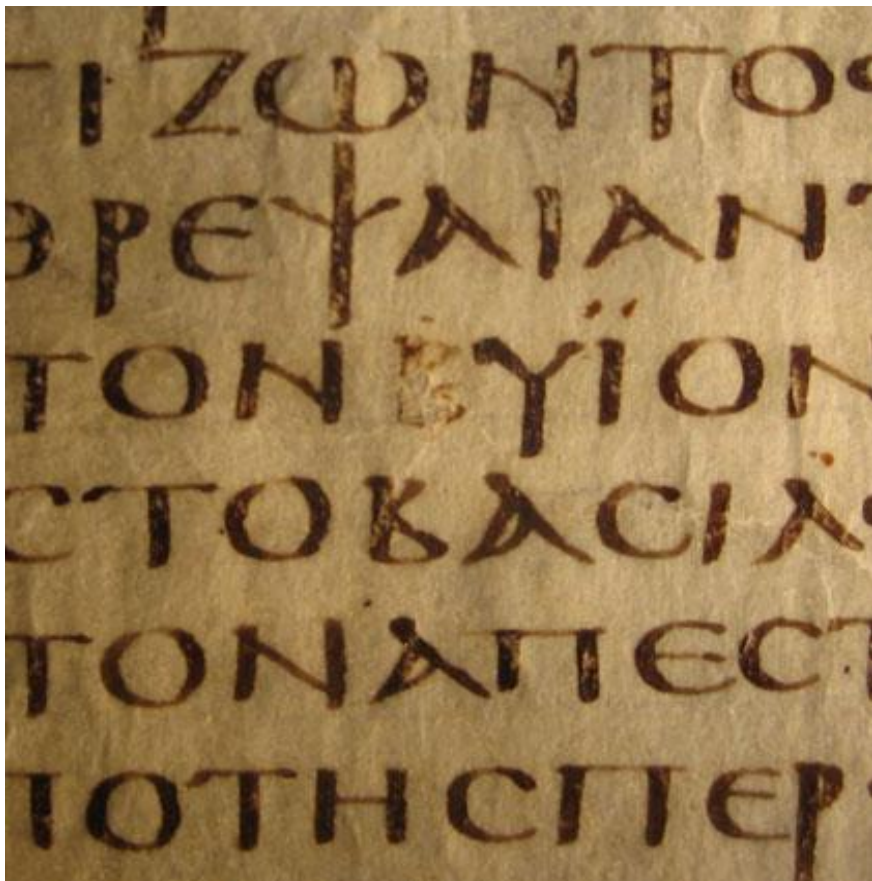 ΤΙ ΖΩΝΤΟϹ
ΘΡΕΨΑΙΑΝΤ
ΤΟΝ ΥΪΟΝ
ϹΤΟΒΑϹΙΛ
ΤΟΝΑΠΕϹΤ
ΠΟΤΗϹΠΕΡ